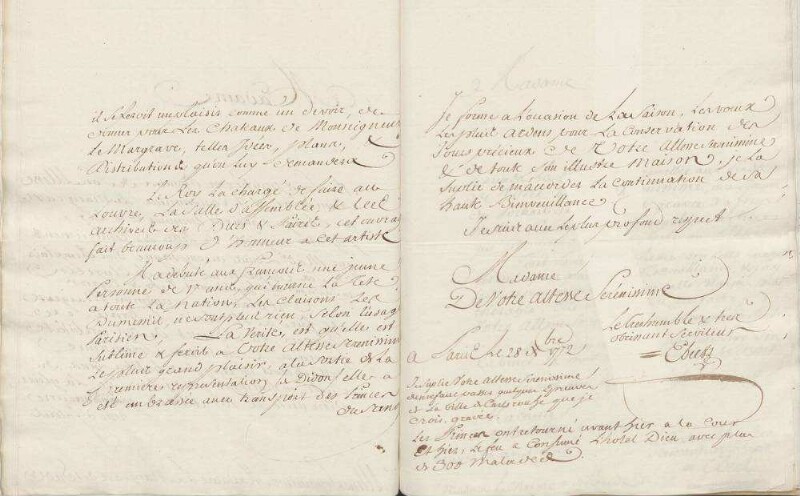 il se feroit un plaisir comme un devoir, de
donner pour Les Chateaux de Monseigneur
Le Margrave, telles idées, plans,
distributions qu'on Luy demandera
Le Roy L'a chargé de faire au
Louvre, La Salle d'assemblée &
archives des Ducs & Pairs, cet ouvrage
fait beaucoup d'honneur a cet artiste
Il a debuté aux françois une jeune
Personne de 17 ans, qui tourne La Tete
a toute la nation, Les Clairons Les
Dumesnil ne sont plus rien, selon L'usage
Parisien, La Verité est qu'elle est
sublime & feroit a Votre Altesse Serenissime
Le plus grand plaisir, a la sortie de La
Premiere representation, de Didon, elle a
été embrassée avec transport des Princes
du sang
Madame
Je forme a L'ocasion de La Saison, Les vœux
Les plus ardens pour La Conservation des
Jours précieux de Votre Altesse Serenissime
& de toute Son illustre Maison, je La
Suplie de m'accorder La Continuation de Sa
haute Bienveuillance
Je suis avec Le plus profond respect
Madame
De Votre Altesse Serénissime
Le tres humble & tres
obeissant Serviteur
a Paris Le 28 Xbre 1772
Je Suplie Votre Altesse Serenissime
de me faire passer quelques Epreuves
de La Ville de Carlsrouhe que je
crois gravée
Les Princes ont retourné avant hier a la cour
et hier, Le feu a Consumé L'hotel Dieu avec plus
de 300 Malades